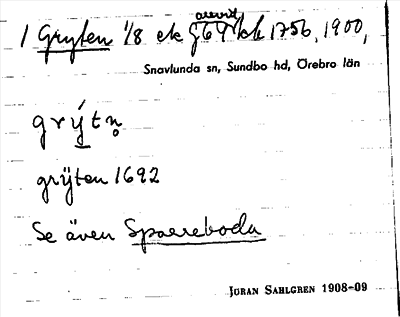 1 Gryten 1/8 ek G69 bl 1756, 1900,
Snavlunda sn, Sundbo hd, Örebro län
grýtn̥
grÿten 1692
Se även Sparreboda
JÖRAN SAHLGREN 1908-09